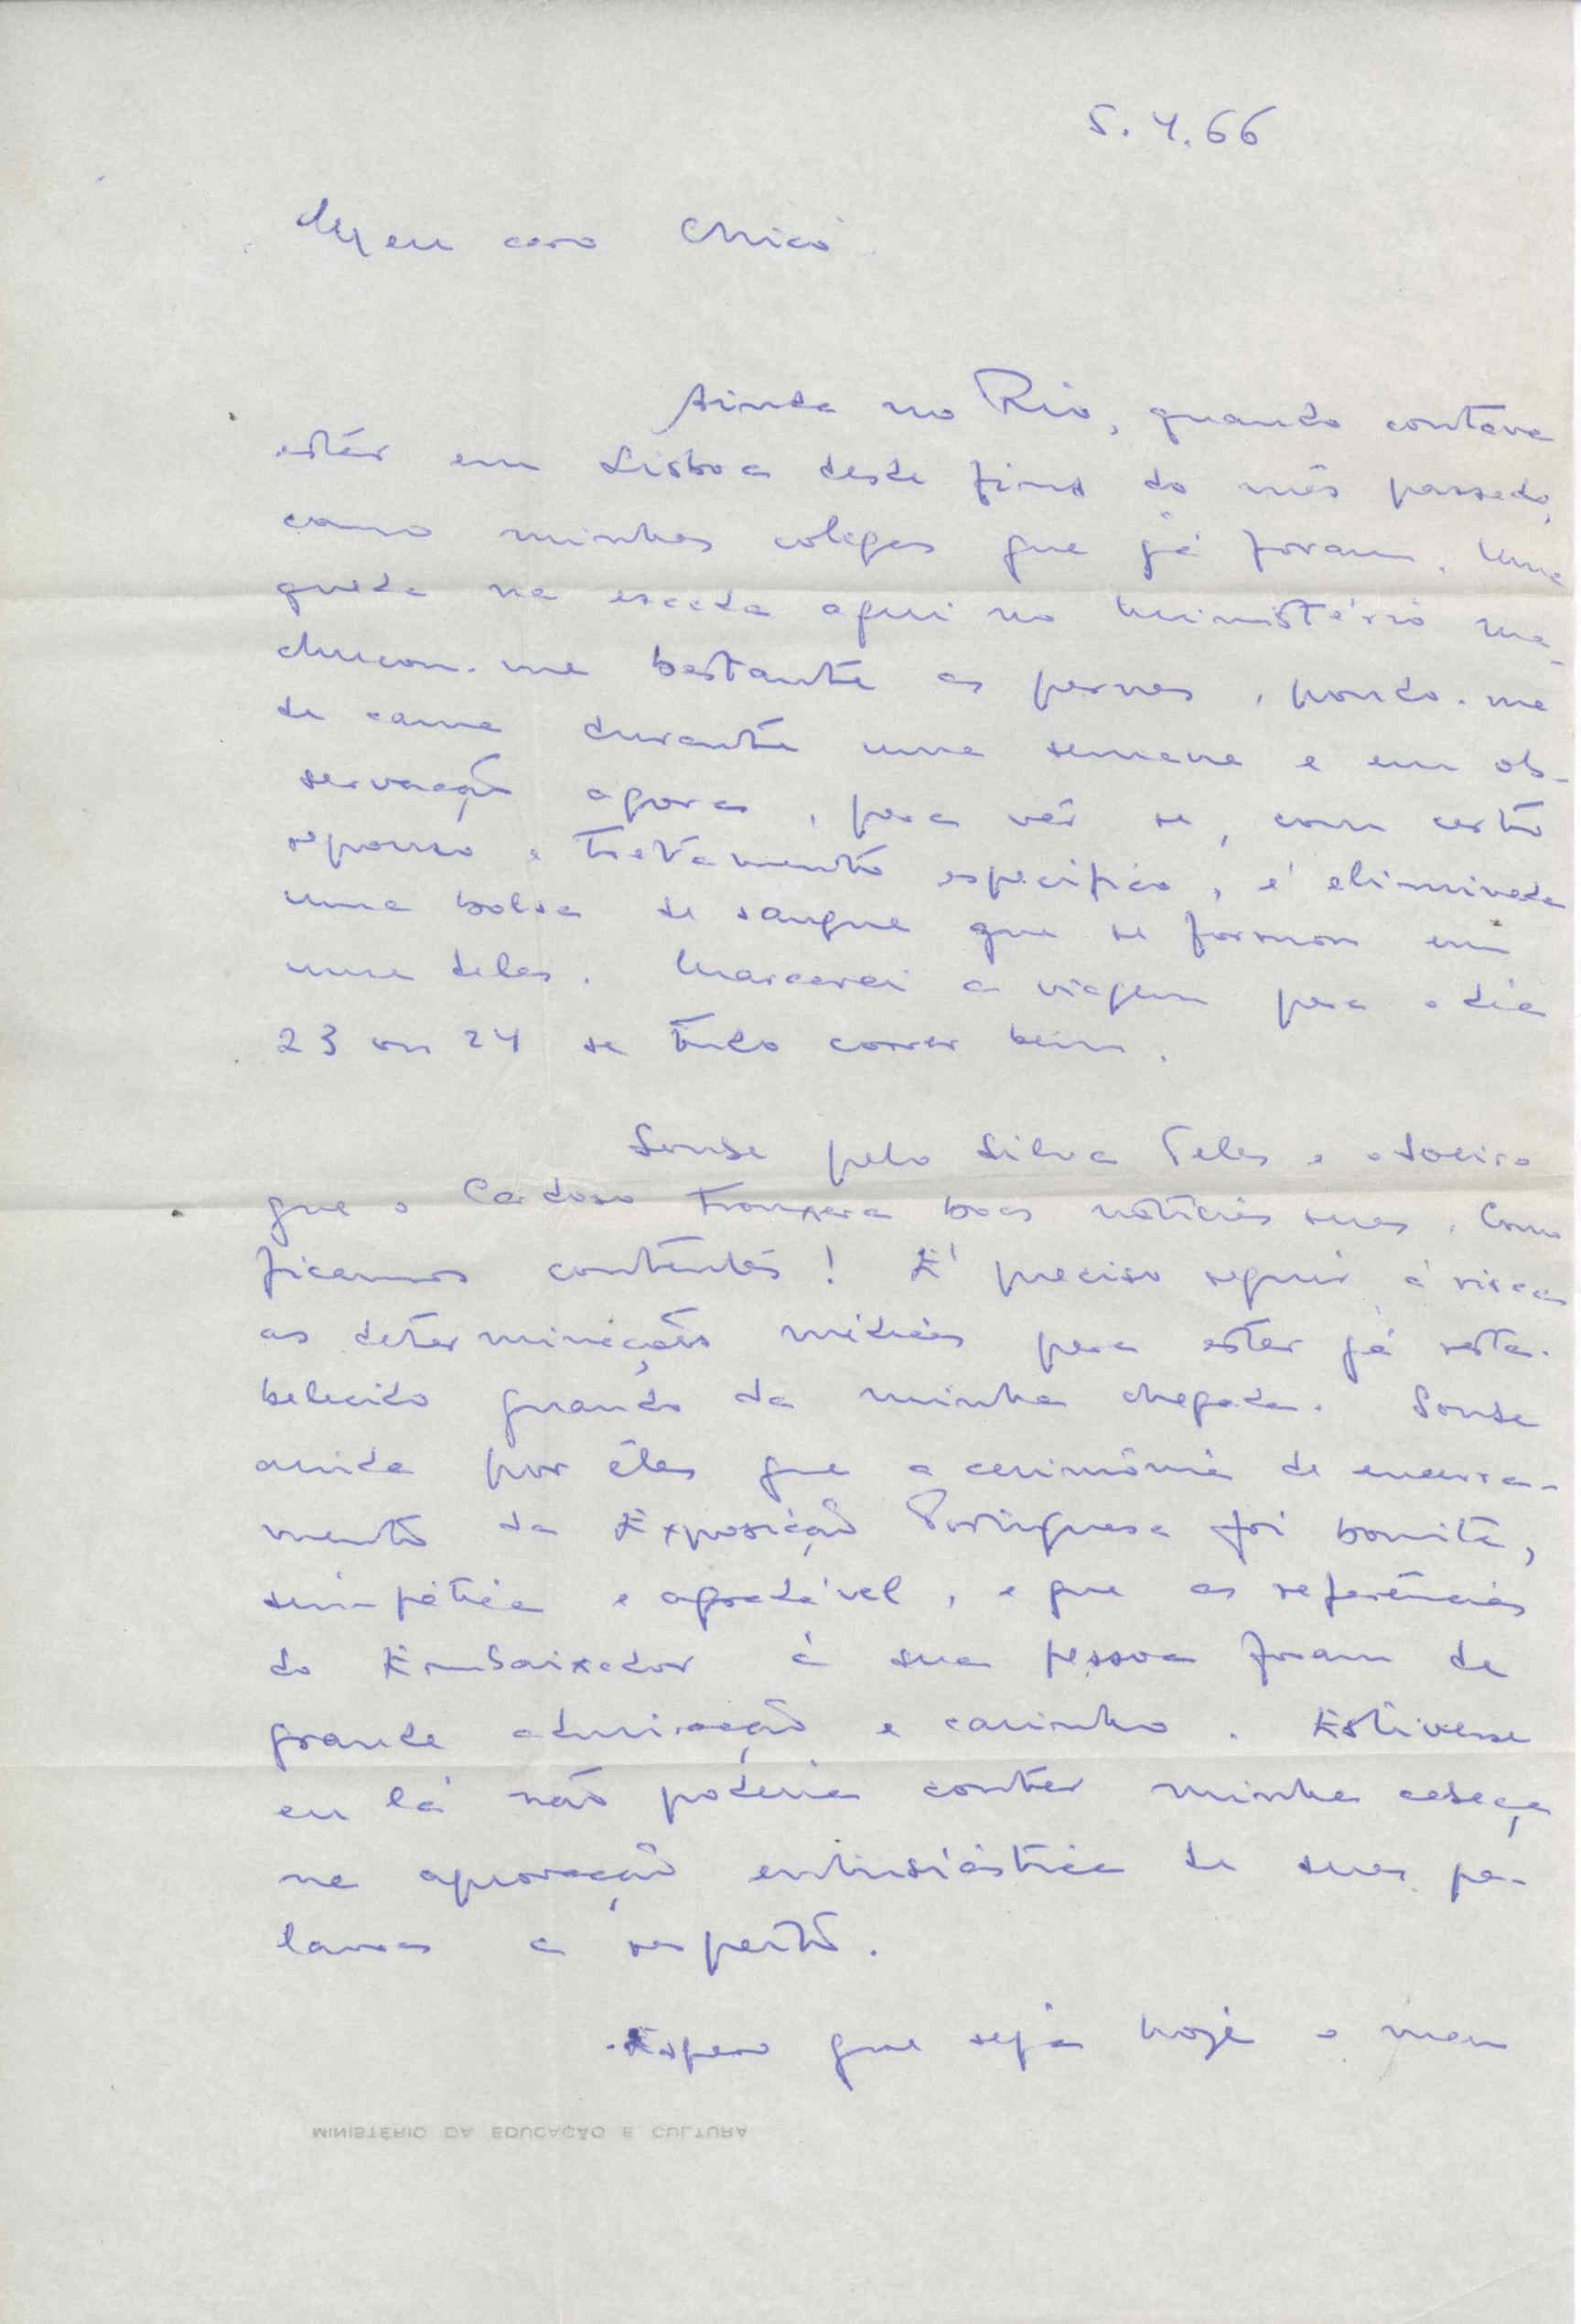 5.4.66
Meu caro Chico
Ainda no Rio, quando contava
estar em Lisboa desde fins do mês passado,
como minhas colegas que já foram. Uma
queda na escada aqui no Ministério ma-
chucou-me bastante as pernas, pondo-me
de cama durante uma semana e em ob-
servação agora, para vêr se, com certo
repouso e tratamento especifico, é eliminada
uma bolsa de sangue que se formou em
uma delas. Marcarei a viagem para o dia
23 ou 24 se tudo correr bem.
Soube pelo Silva Teles e o
que o Cardoso trouxera boas notícias suas. Como
ficamos contentes! É preciso seguir à risca
as determinações médicas para estar já resta-
belecido quando da minha chegada. Soube
ainda por êles que a cerimônia de encerra-
mento da Exposição Portuguesa foi bonita,
simpática e agradável, e que as referências
do Embaixador à sua pessoa foram de
grande admiração e carinho. Estivesse
eu lá não poderia conter minha cabeça
na aprovação entusiástica de suas pa-
lavras a respeito.
Espero que seja hoje o meu
MINISTÉRIO DA EDUCAÇÃO E CULTURA